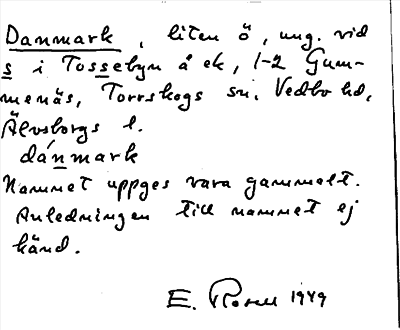 Danmark, liten ö, ung. vid
s i Tossebyn å ek, 1-2 Gum-
menäs, Torrskogs sn. Vedbo hd,
Älvsborgs l.
dánmark
Namnet uppges vara gammalt.
Anledningen till namnet ej
känd.
E. Rosell 1949